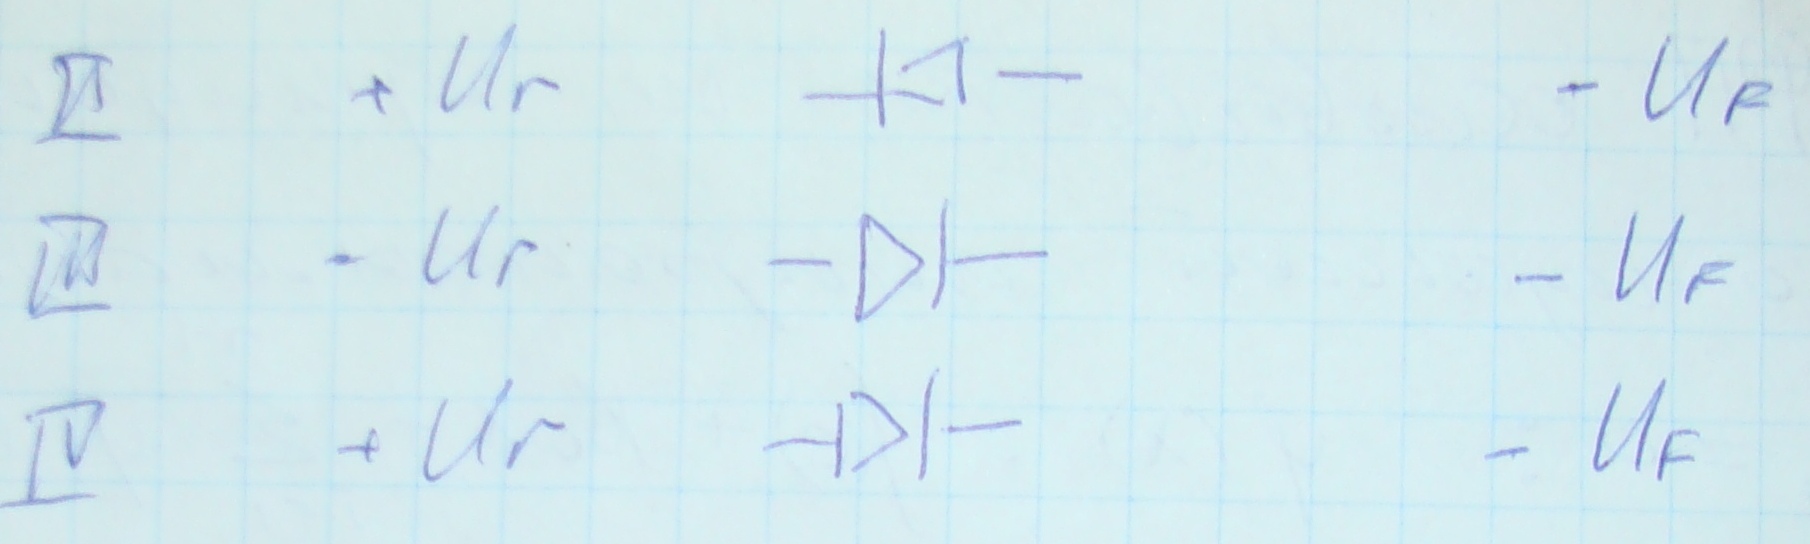 II + Ur - UF
III - Ur - UF
IV + Ur - UF